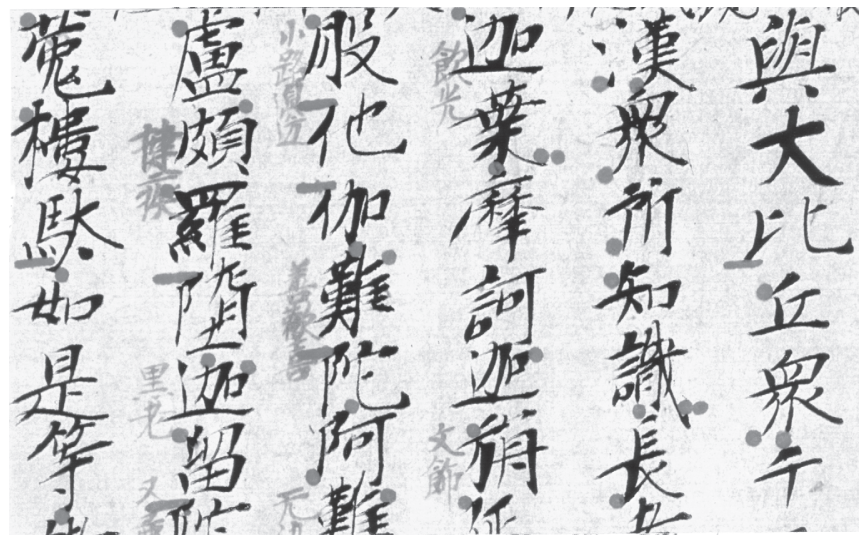 與大比丘衆千
漢衆所知識長
迦葉摩訶迦旃延
飲光 文飾
般他伽難陀阿難
小路 善歡喜
盧頗羅墮迦留陀
捷疾 黒光
菟樓駄如是等